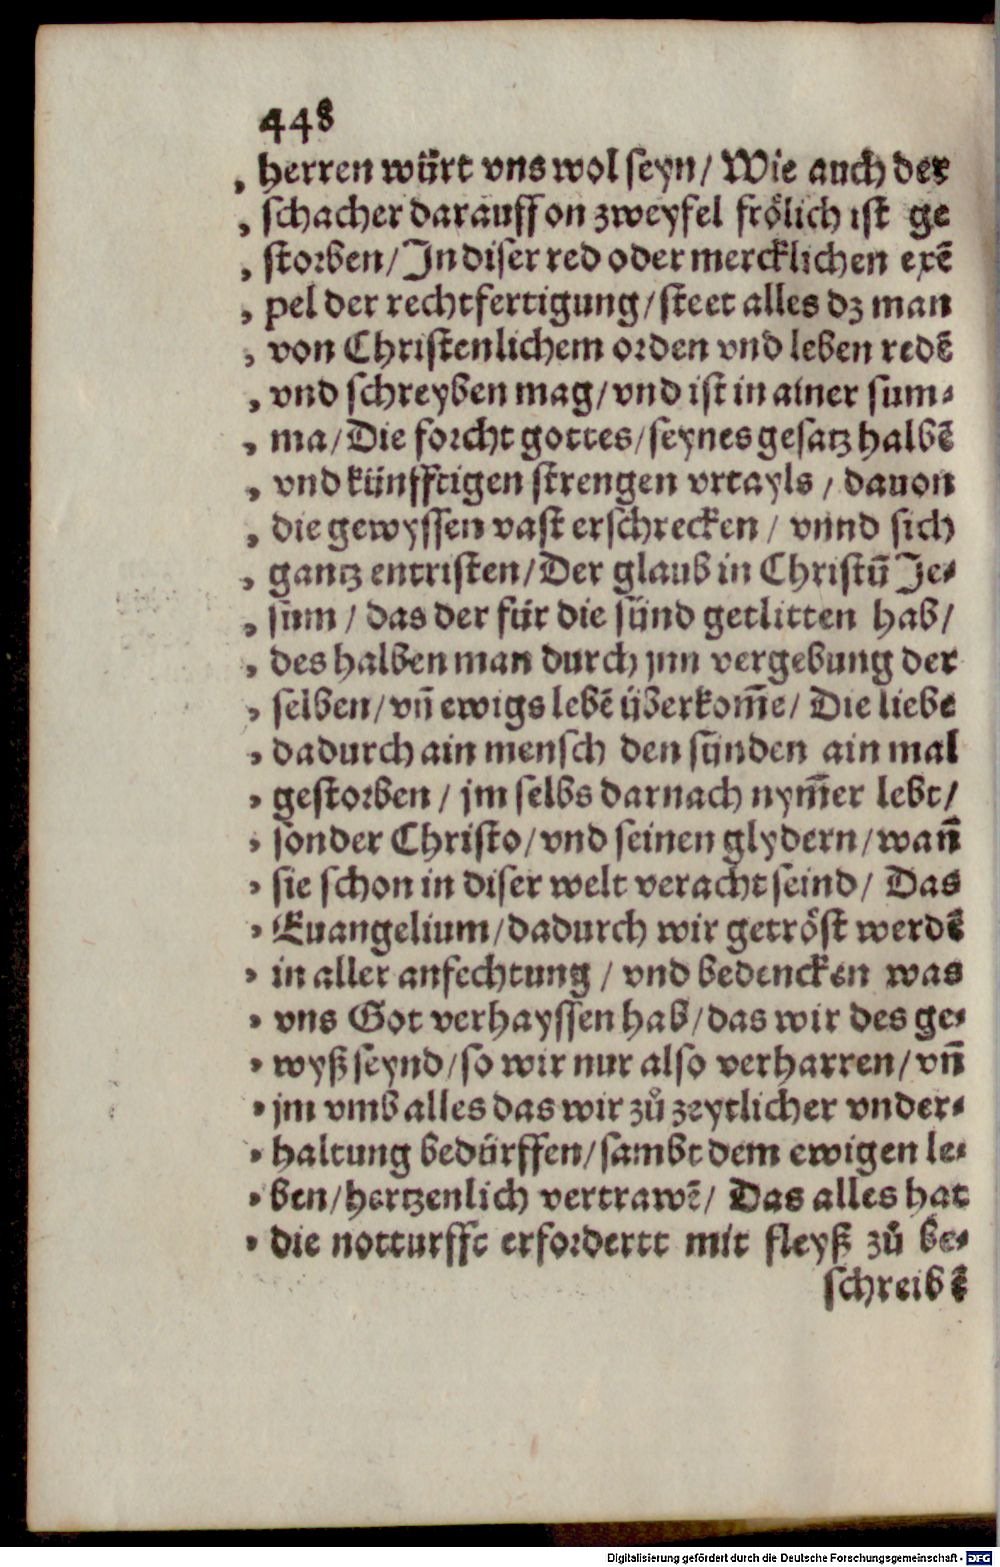 448
, herren würt vns wol seyn/ Wie auch der
, schacher darauff on zweyfel frölich ist ge
, storben/ In diser red oder mercklichen exē
, pel der rechtfertigung/ steet alles dz man
, von Christenlichem orden vnd leben redē
, vnd schreyben mag/ vnd ist in ainer sum⸗
, ma/ Die forcht gottes/ seynes gesatz halbē
, vnd künfftigen strengen vrtayls/ dauon
, die gewyssen vast erschrecken/ vnnd sich
, gantz entristen/ Der glaub in Christū Je⸗
, sum/ das der für die sünd getlitten hab/
, des halben man durch jm vergebung der
, selben/ vn̄ ewigs lebē überkom̄e/ Die liebe
, dadurch ain mensch den sünden ain mal
, gestorben/ jm selbs darnach nym̄er lebt/
, sonder Christo/ vnd seinen glydern/ wan̄
, sie schon in diser welt veracht seind/ Das
, Euangelium/ dadurch wir getröst werdē
, in aller anfechtung/ vnd bedencken was
, vns Got verhayssen hab/ das wir des ge⸗
, wyß seynd/ so wir nur also verharren/ vn̄
, jm vmb alles das wir zů zeytlicher vnder⸗
, haltung bedürffen/ sambt dem ewigen le⸗
, ben/ hertzenlich vertrawē/ Das alles hat
, die notturfft erfordertt mit fleyß zů be⸗
schreibē
Digitalisierung gefördert durch die Deutsche Forschungsgemeinschaft - DFG